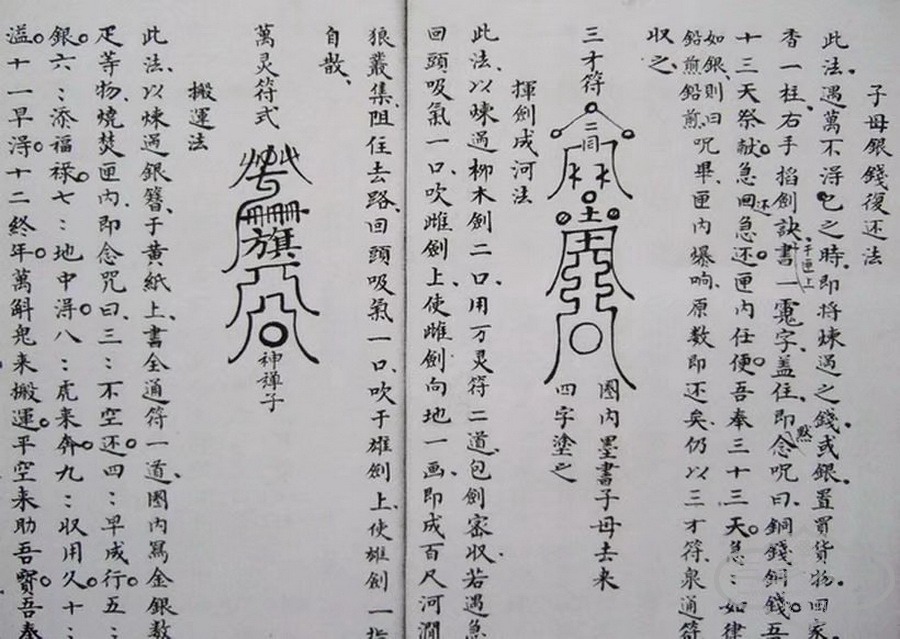 子母銀錢復还法
此法、遇萬不得已之時、即将煉過之錢、或銀、置買貨物、回家
香一柱、右手掐劍訣、書于匣上一字、盖住、即默念咒曰、銅錢銅錢。吾
十三天祭献。急回急还。匣内任便。吾奉三十三天。急：如律
如銀、則曰
鉛煎鉛煎、咒畢、匣内爆响、原数即还矣、仍以三才符、泉通符
収之、
三才符
二同
土
圈内墨書子母去来
四字塗之
揮劍成河法
此法、以煉過柳木劍二口、用万灵符二道、包劍密収、若遇急
回頭吸氣一口、吹雌劍上、使雌劍向地一画、即成百尺河澗
狼叢集、阻住去路、回頭吸氣一口、吹于雄劍上、使雄劍一指
自散、
萬灵符式
旗
神禅子
搬運法
此法、以煉過銀簪、于黄紙上、書全通符一道、圈内寫金銀数
疋等物、燒焚匣内、即念咒曰、三：不空还。四：早成行。五：
銀。六：添福禄。七：地中得。八：虎来奔。九：収用久。十：
溢。十一早得。十二終年。萬斛鬼来搬運。平空来助吾寳。吾奉